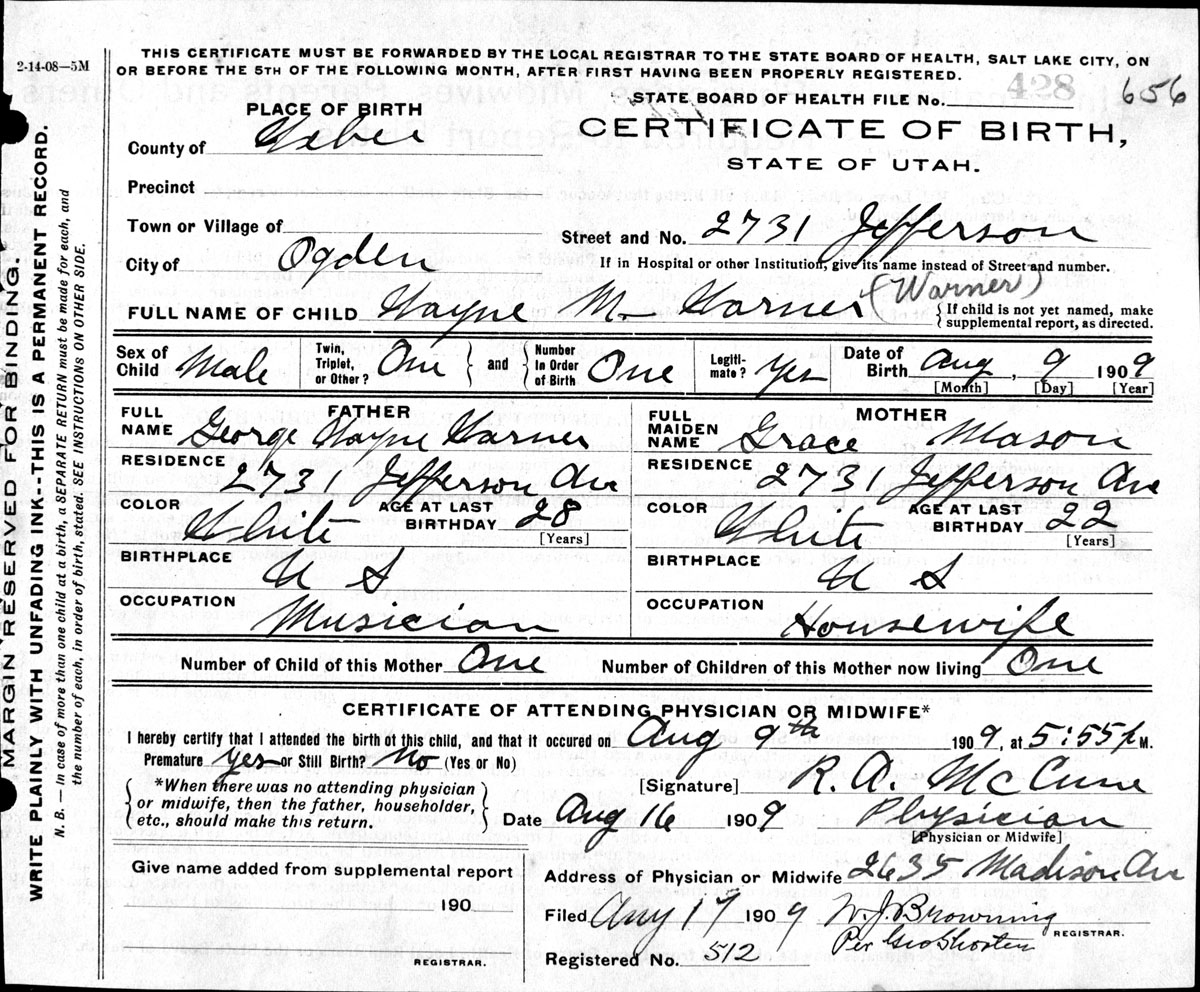 2-14-08—5M
THIS CERTIFICATE MUST BE FORWARDED BY THE LOCAL REGISTRAR TO THE STATE BOARD OF HEALTH, SALT LAKE CITY, ON
OR BEFORE THE 5TH OF THE FOLLOWING MONTH, AFTER FIRST HAVING BEEN PROPERLY REGISTERED.
STATE BOARD OF HEALTH FILE No. 428 656
PLACE OF BIRTH
CERTIFICATE OF BIRTH,
STATE OF UTAH.
County of Weber
Precinct
Town or Village of
Street and No. 2731 Jefferson
City of Ogden
If in Hospital or other Institution, give its name instead of Street and number.
FULL NAME OF CHILD Wayne M. Warner (Warner)
{If child is not yet named, make
supplemental report, as directed.
Sex of Child Male
Twin, Triplet, or Other? One } and { Number in Order of Birth One
Legitimate? Yes
Date of Birth Aug, 9 1909
[Month] [Day] [Year]
FATHER
FULL NAME George Wayne Warner
MOTHER
FULL MAIDEN NAME Grace Mason
RESIDENCE 2731 Jefferson Av
RESIDENCE 2731 Jefferson Av
COLOR White AGE AT LAST BIRTHDAY 28 [Years]
COLOR White AGE AT LAST BIRTHDAY 22 [Years]
BIRTHPLACE U S
BIRTHPLACE U S
OCCUPATION Musician
OCCUPATION Housewife
Number of Child of this Mother One Number of Children of this Mother now living One
CERTIFICATE OF ATTENDING PHYSICIAN OR MIDWIFE*
I hereby certify that I attended the birth of this child, and that it occured on Aug 9th 1909, at 5:55 P M.
Premature yes or Still Birth? No (Yes or No)
*When there was no attending physician
or midwife, then the father, householder,
etc., should make this return.
[Signature] R. A. McCune
Date Aug 16 1909 Physician
[Physician or Midwife]
Give name added from supplemental report
190
REGISTRAR.
Address of Physician or Midwife 2635 Madison Av
Filed Aug 17 1909 W. J. Browning
REGISTRAR.
Per Geo Shorten
Registered No. 512
MARGIN RESERVED FOR BINDING.
WRITE PLAINLY WITH UNFADING INK--THIS IS A PERMANENT RECORD.
N. B. — In case of more than one child at a birth, a SEPARATE RETURN must be made for each, and
the number of each, in order of birth, stated. SEE INSTRUCTIONS ON OTHER SIDE.